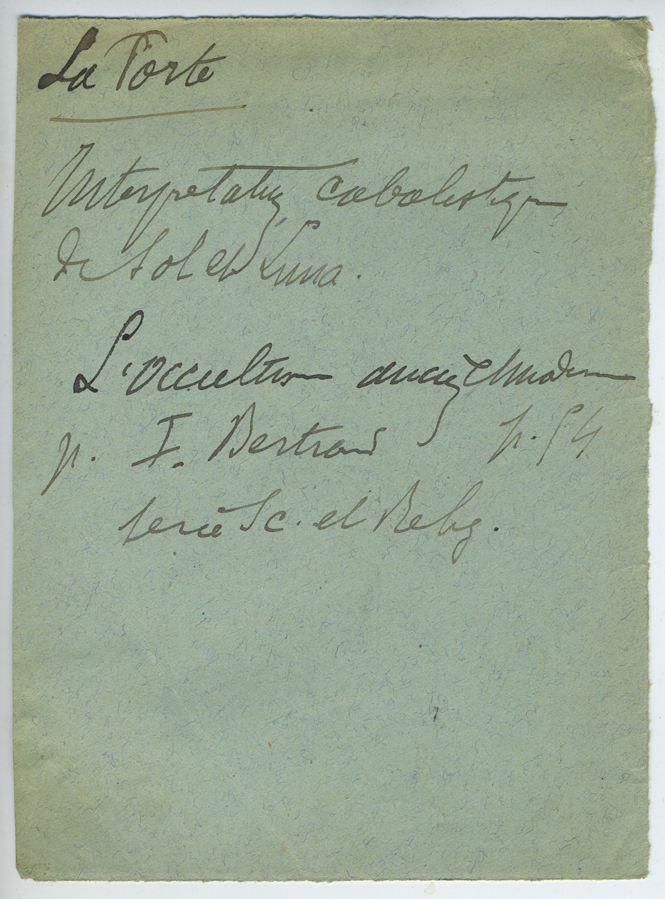 La Porte
Interpretation cabalistique
de Sol et Luna.
L'Occultisme ancien et moderne
p. I. Bertrand p. 54
serie Sc. et Relig.